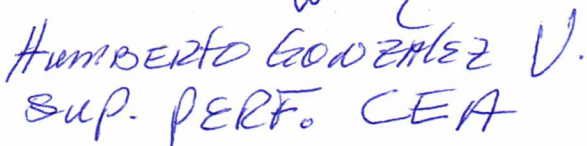 HUMBERTO GONZALEZ V.
SUP. PERF. CEA